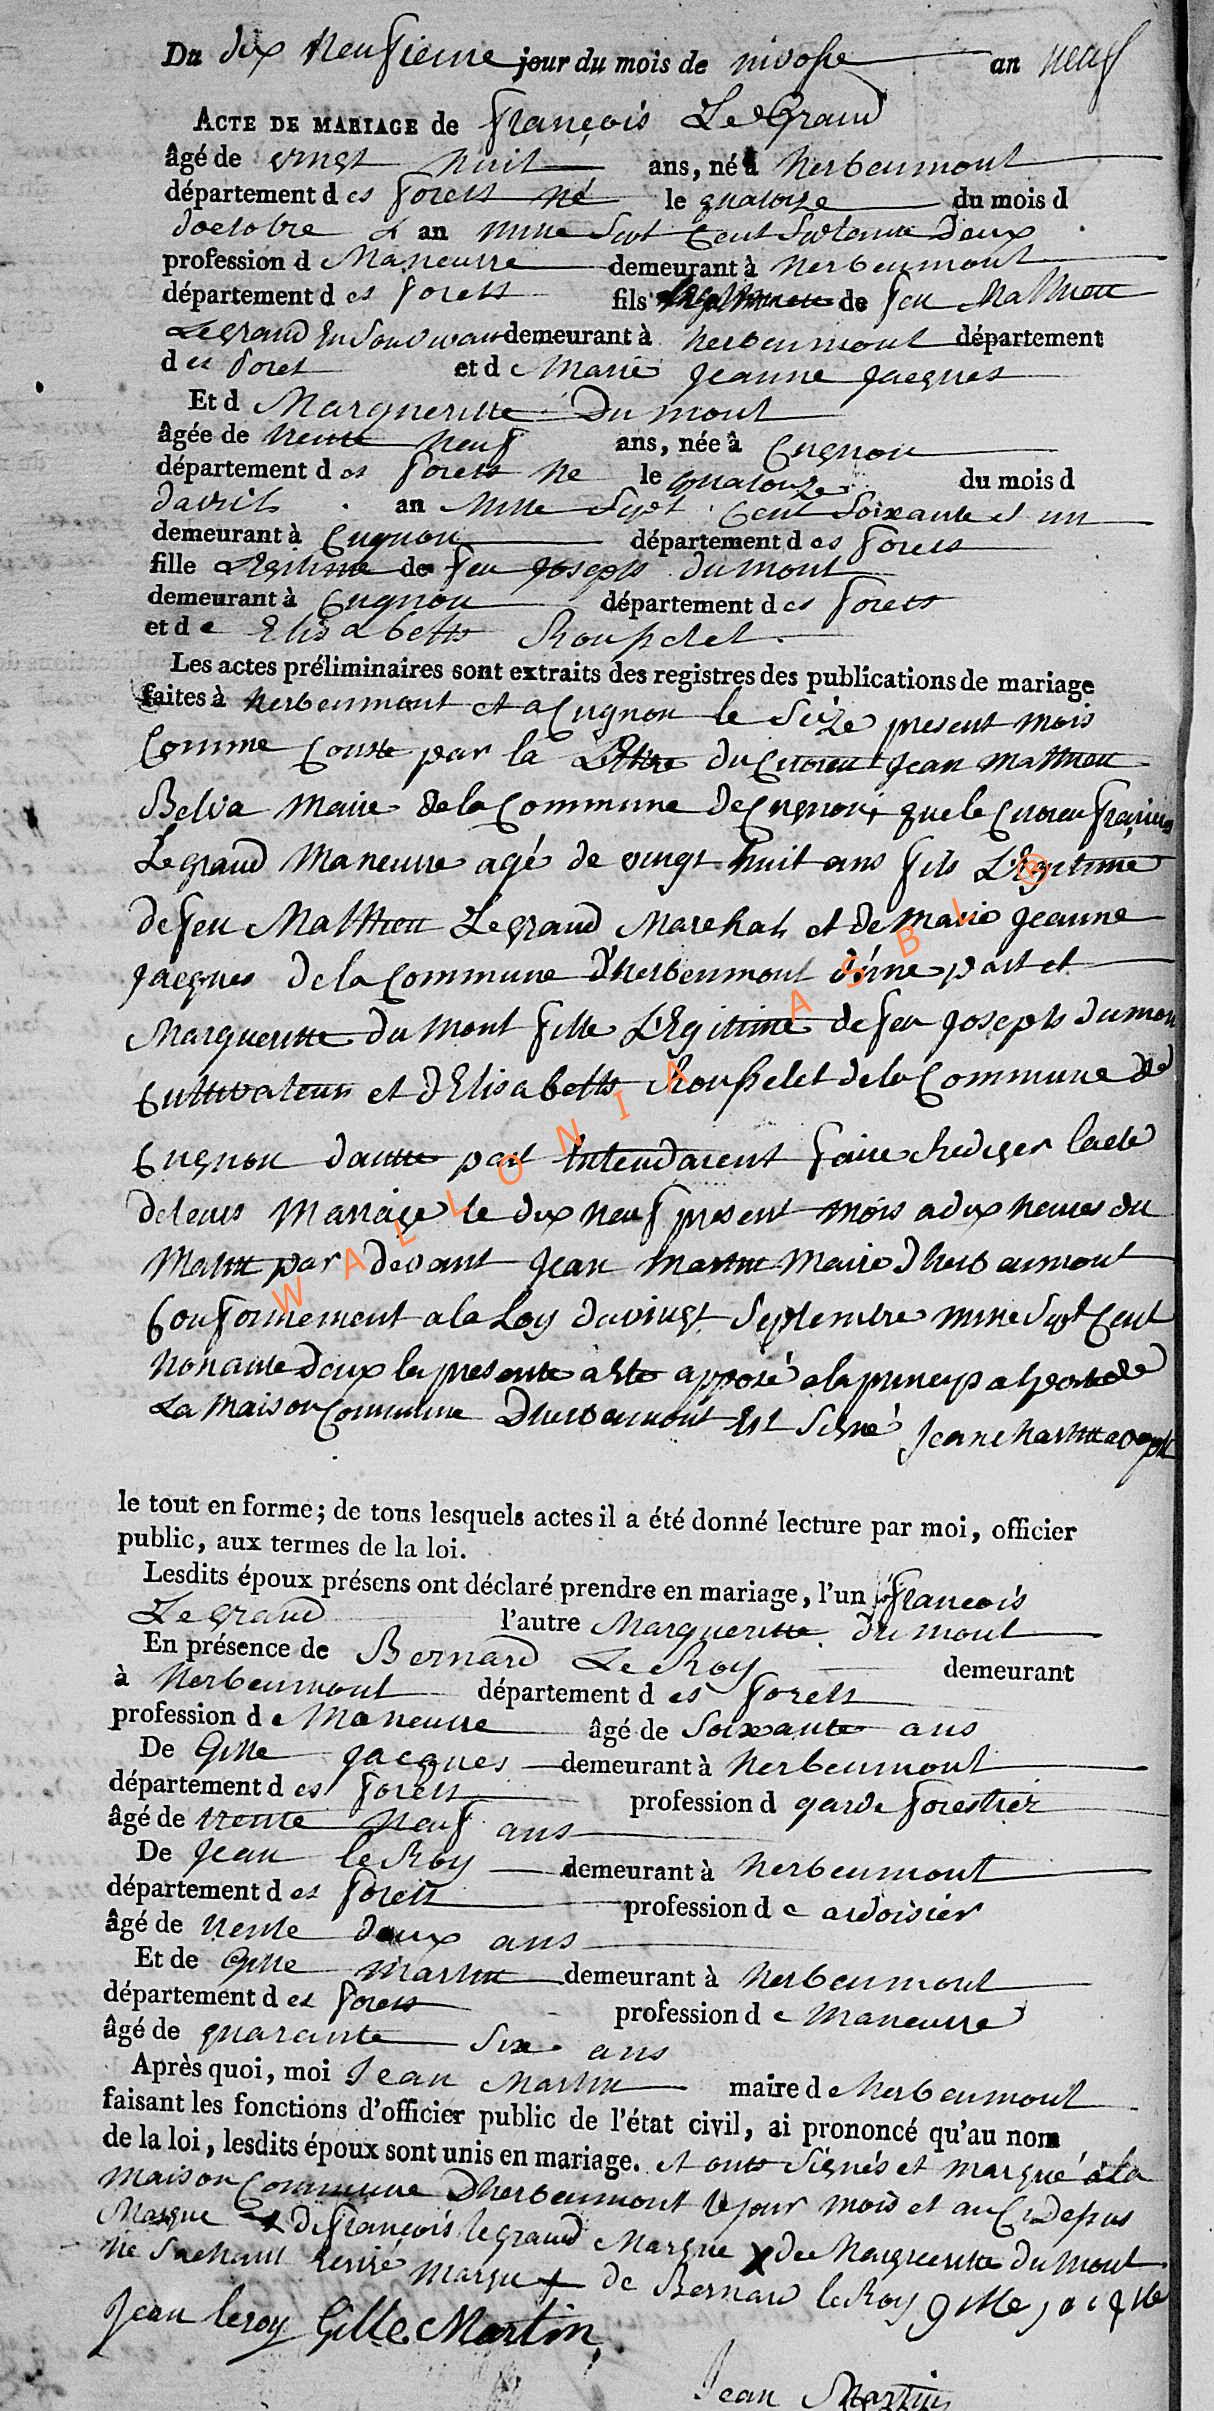 Du dix neufieme jour du mois de nivosse an neuf
ACTE DE MARIAGE de françois Le Grand
âgé de vingt huit ans, né à herbeumont
département d es forets né le quatorze du mois d
doctobre an mille Sept Cent Septante deux
profession d Maneuvre demeurant à herbeumont
département d es forets fils de feu Mathieu
Legrand En Son vivant demeurant à herbeumont département
d es foret et d e Marie Jeanne Jacques
Et d Margueritte Du mont
âgée de trente neuf ans, née à Cugnon
département d es forets né le quatorze du mois d
davril an Mille Sept Cent Soixante et un
demeurant à Cugnon département d es forets
fille Legitime de feu Joseph dumont
demeurant à Cugnon département d es forets
et d e Elisabeth Rousselet
Les actes préliminaires sont extraits des registres des publications de mariage
faites à herbeumont et a Cugnon le Seize present mois
Comme Conste par la Lettre du Citoien Jean mathieu
Belva Maire de la Commune de Cugnon, que le Citoien françois
Legrand Maneuvre agé de vingt huit ans fils L'Egitime
de feu Mathieu Legrand Marechal et de Marie Jeanne
Jacques de la Commune d'herbeumont d'une part et
Margueritte du Mont fille L'Egitime de feu Joseph dumont
Cultivateur et d'Elisabeth Rousselet de la Commune de
Cugnon dautre part Intendaient faire Rediger lacte
de leurs Mariage le dix neuf present mois a dix heures du
Matin par devant Jean Martin Maire d'herbeumont
Conformement a la Loy du vingt Septembre mille Sept Cent
Nonante deux la presente a Ete apposé a la principal porte de
La Maison Commune D'herbeumont Est Signé Jean Martin
le tout en forme; de tous lesquels actes il a été donné lecture par moi, officier
public, aux termes de la loi.
Lesdits époux présens ont déclaré prendre en mariage, l'un françois
Legrand l'autre Margueritte Dumont
En présence de Bernard Le Roy demeurant
à herbeumont département d es forets
profession d e Maneuvre âgé de Soixante ans
De Gille Jacques demeurant à herbeumont
département d es forets profession d garde forestier
âgé de trente neuf ans
De Jean le Roy demeurant à herbeumont
département d es forets profession d e ardoisier
âgé de trente deux ans
Et de Gille Martin demeurant à herbeumont
département d es forets profession d e Maneuvre
âgé de quarante Six ans
Après quoi, moi Jean Martin maire d e herbeumont
faisant les fonctions d'officier public de l'état civil, ai prononcé qu'au nom
de la loi, lesdits époux sont unis en mariage. et onts Signés et marqué a la
Maison Commune D'herbeumont le jour mois et an
Marque de françois le grand Marque X de Margueritte du Mont
Ne Sachant Ecrire Marque de Bernard le Roy gille jacque
Jean leroy Gille Martin
Jean Martin
WALLONIA ASBL ®